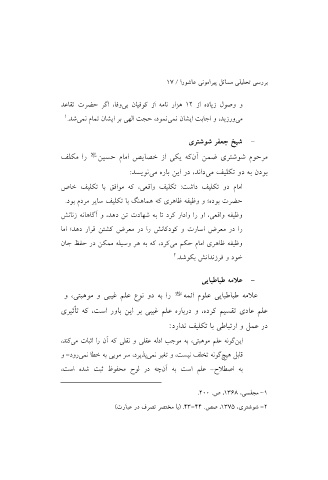 بررسی تحلیلی مسائل پیرامونی عاشورا / ۱۷
و وصول زیاده از ۱۲ هزار نامه از کوفیان بی‌وفا، اگر حضرت تقاعد
می‌ورزید، و اجابت ایشان نمی‌نمود، حجت الهی بر ایشان تمام نمی‌شد.۱
- شیخ جعفر شوشتری
مرحوم شوشتری ضمن آن‌که یکی از خصایص امام حسین را مکلف
بودن به دو تکلیف می‌داند، در این باره می‌نویسد:
امام دو تکلیف داشت: تکلیف واقعی، که موافق با تکلیف خاص
حضرت بوده؛ و وظیفه ظاهری که هماهنگ با تکلیف سایر مردم بود.
وظیفه واقعی، او را وادار کرد تا به شهادت تن دهد، و آگاهانه زنانش
را در معرض اسارت و کودکانش را در معرض کشتن قرار دهد؛ اما
وظیفه ظاهری امام حکم می‌کرد، که به هر وسیله ممکن در حفظ جان
خود و فرزندانش بکوشد.۲
- علامه طباطبایی
علامه طباطبایی علوم ائمه را به دو نوع علم غیبی و موهبتی، و
علم عادی تقسیم کرده، و درباره علم غیبی بر این باور است، که تأثیری
در عمل و ارتباطی با تکلیف ندارد:
این‌گونه علم موهبتی، به موجب ادله عقلی و نقلی که آن را اثبات می‌کند،
قابل هیچ‌گونه تخلف نیست، و تغیر نمی‌پذیرد، سر مویی به خطا نمی‌رود- و
به اصطلاح- علم است به آن‌چه در لوح محفوظ ثبت شده است،
۱- مجلسی، ۱۳۶۸، ص. ۲۰۰.
۲- شوشتری، ۱۳۷۵، صص. ۴۴-۴۳. (با مختصر تصرف در عبارت)